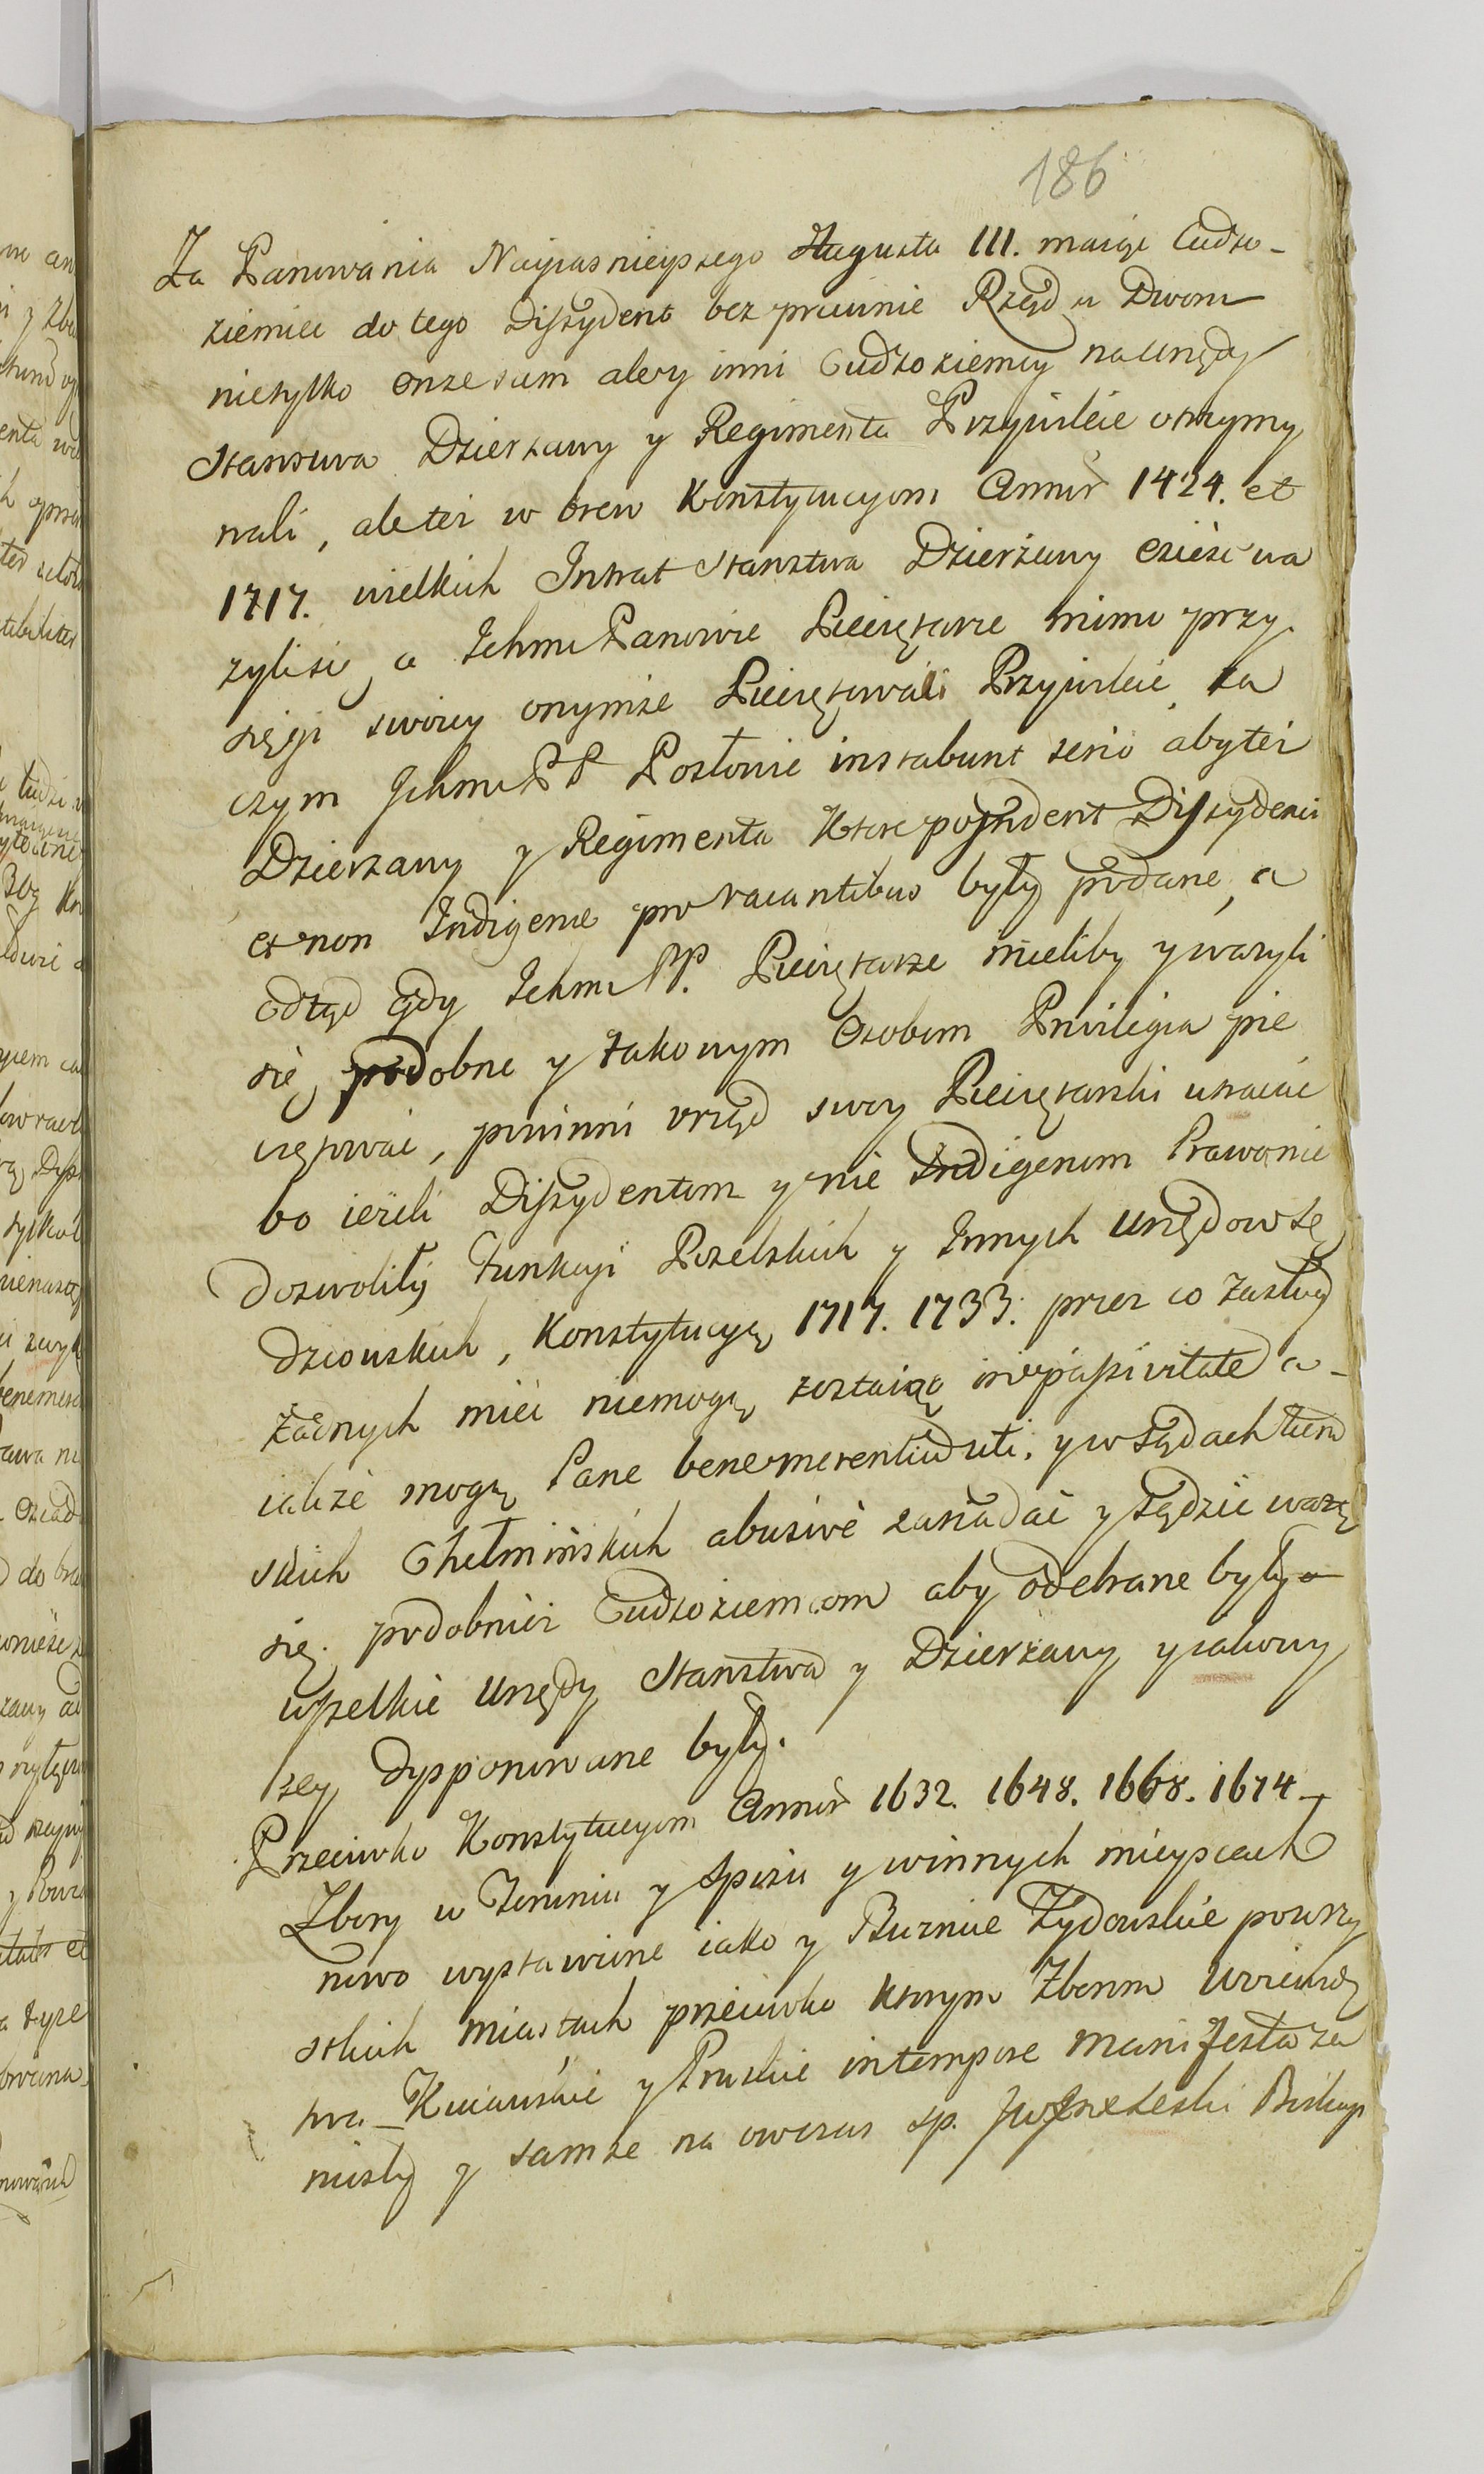 186
Za Panowania Nayiasnieyszego Augusta III. maiąc Cudzo-
ziemiec do tego Dissydent bezprawnie Rząd u Dworu
nietylko onze sam ale y inni Cudzoziemcy na Urzędy
Starostwa Dzierzawy y Regimenta Przywileie otrzymy
wali, ale tez w brew Konstytucyom Annor 1424. et
1717. wielkich Intrat Starostwa Dzierżawy
a Ichmć Panowie Pieczętarze mimo przy
sięgi swoiey onymże Pieczętowali Przywileie, za
czym Ichmć PP Posłowie instabunt serio aby tez
Dzierzawy y Regimenta Ktore Dissydenci
et non Indigenae pro vacantibus były podane, a
odtąd gdy Ichmć PP. Pieczętarze mieliby y wazyli
się podobne y takowym Osobom Privilegia pie
czętować, powinni urząd swoy Pieczętarski utracić
bo ieżeli Dissydentom y nie Indigenom Prawa nie
dozwoliły Funkcyi Poselskich y Innych Urzędow Sę
dziowskich, Konstytucyą 1717. 1733. przez co Zasług
żadnych mieć niemogą zostaiąc a-
iakże mogą Pane bene merentium uti, y w Sądach Ziem
skich Chełmińskich abusivè zasiadać y sądzić ważą
się. podobnież Cudzoziemcom aby odebrane były
wszelkie Urzędy Starostwa y Dzierzawy
dysponowane były.
Przeciwko Konstytucyom Annor 1632. 1648. 1668. 1674
Zbory w Toruniu y Spiżu y w innych mieyscach
nowo wystawione iako y Bużnice Żydowskie po wszy
stkich miastach przeciwko ktorym Zborom Woiewodz
twa Kuiawskie y Pruskie in tempore Manifesta za
niosły y tamże na owczas sp. Biskup